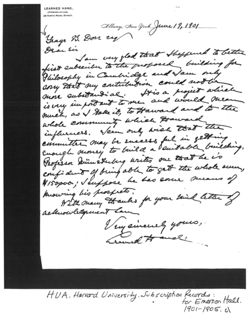 LEARNED HAND,
Albany, New York June 19, 1901
George B. Dorr esq
Dear Sir
I am very glad that I happened to be the
first subscriber to the proposed building for
Philosophy in Cambridge and I am only
sorry that my contribution could not be
more substantial. It is a project which
is very important to me and would mean
much, as I take it, to Harvard and to the
whole community which Harvard
influences. I am only wish that the
committee may be successful in getting
enough money to build a suitable building.
Professor Münsterberg writes me that he is
confident of being able to get the whole sum,
$150000; I suppose he has some means of
knowing his prospects.
With many thanks for your kind letter of
acknowledgement I am
Very sincerely yours,
Learned Hand.
HUA. Harvard University. Subscription Records
for Emerson Hall.
1901-1905.